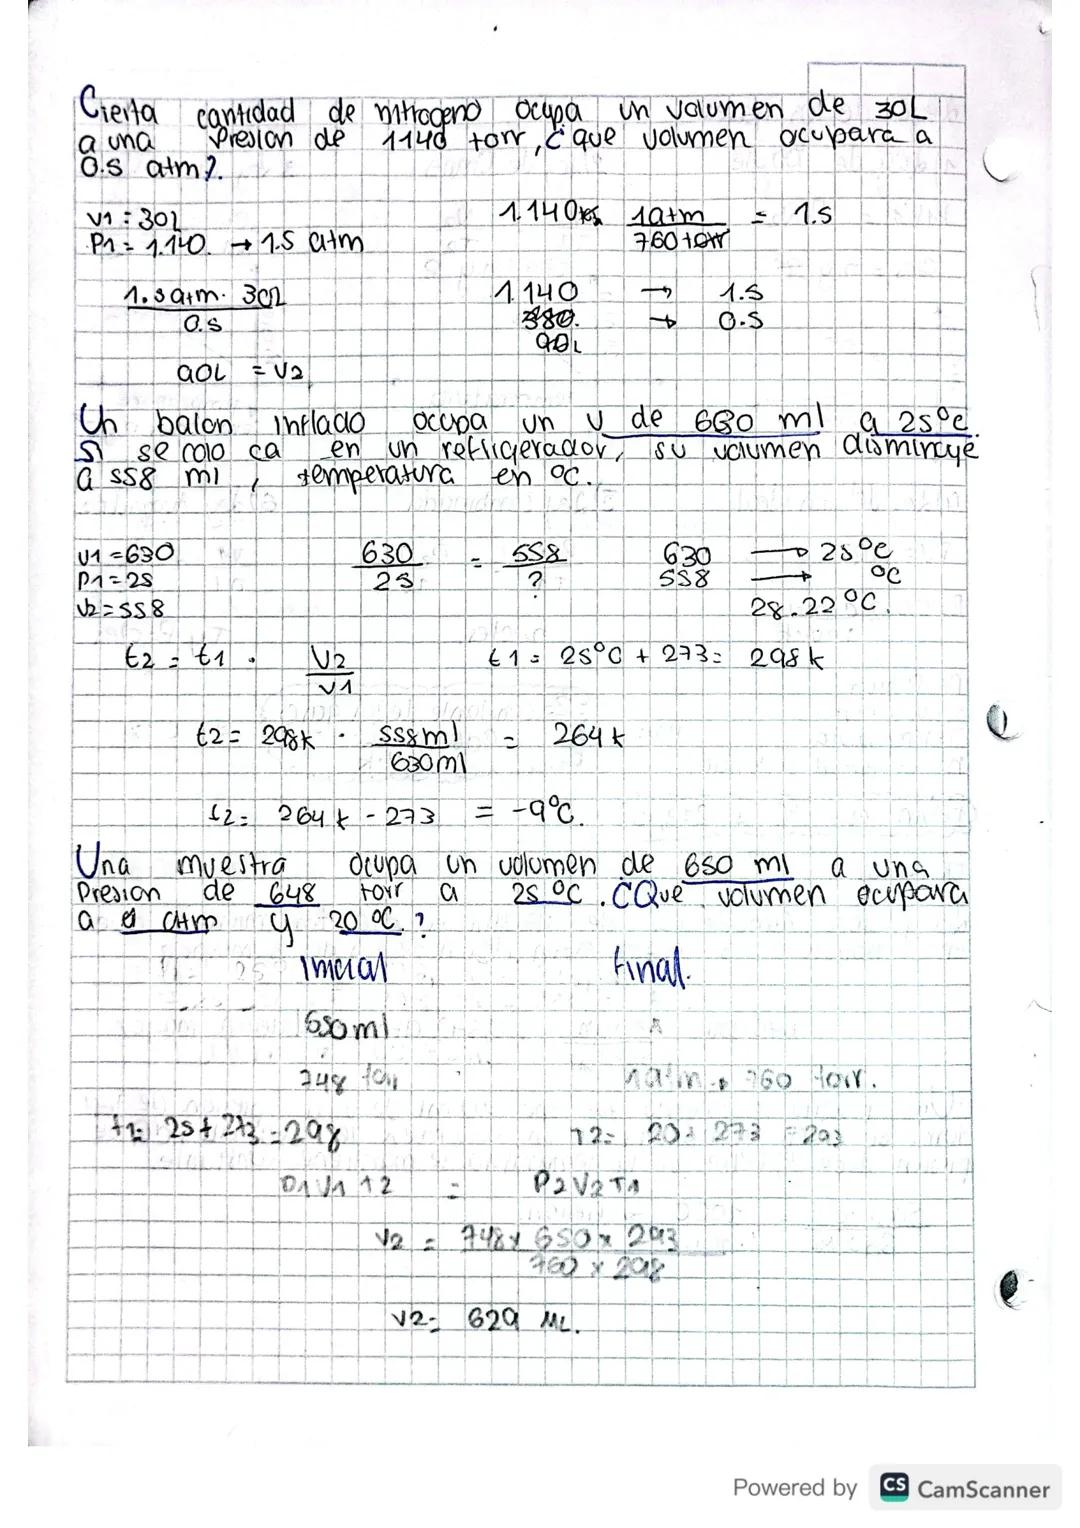 Cierta cantidad de nitrogeno ocupa un volumen de 30L
a una Presion de 1140 torr, ¿ que volumen ocupara a
0.5 atm?.
V1 = 30L
P1 = 1.140. → 1.5 atm
1.140 1atm = 1.5
760 torr
1.5 atm. 30L
0.5
1.140 → 1.5
380. → 0.5
90L
90L = V2
Un balon inflado ocupa un v de 630 ml a 25°c.
Si se colo ca en un refligerador, su volumen dismiruye
a 558 ml , temperatura en °C.
V1 = 630
P1 = 25
V2 = 558
630 = 558
25 ?
630 → 25°c
558 → °C
28.22°C.
t2 = t1 . V2
V1
t1 = 25°C + 273 = 298 k
t2 = 298k . 558ml = 264 k
630ml
t2 = 264 k - 273 = -9°C.
Una muestra ocupa un volumen de 650 ml a una
Presion de 648 torr a 25°C . ¿Que volumen ocupara
a atm y 20°C.?
Inicial final.
650ml
748 torr 1atm → 760 torr.
t1= 25 + 273 = 298 T2= 20 + 273 = 293
P1 V1 T2 = P2 V2 T1
V2 = 748 x 650 x 293
760 x 298
V2= 629 ML.
Powered by CS CamScanner